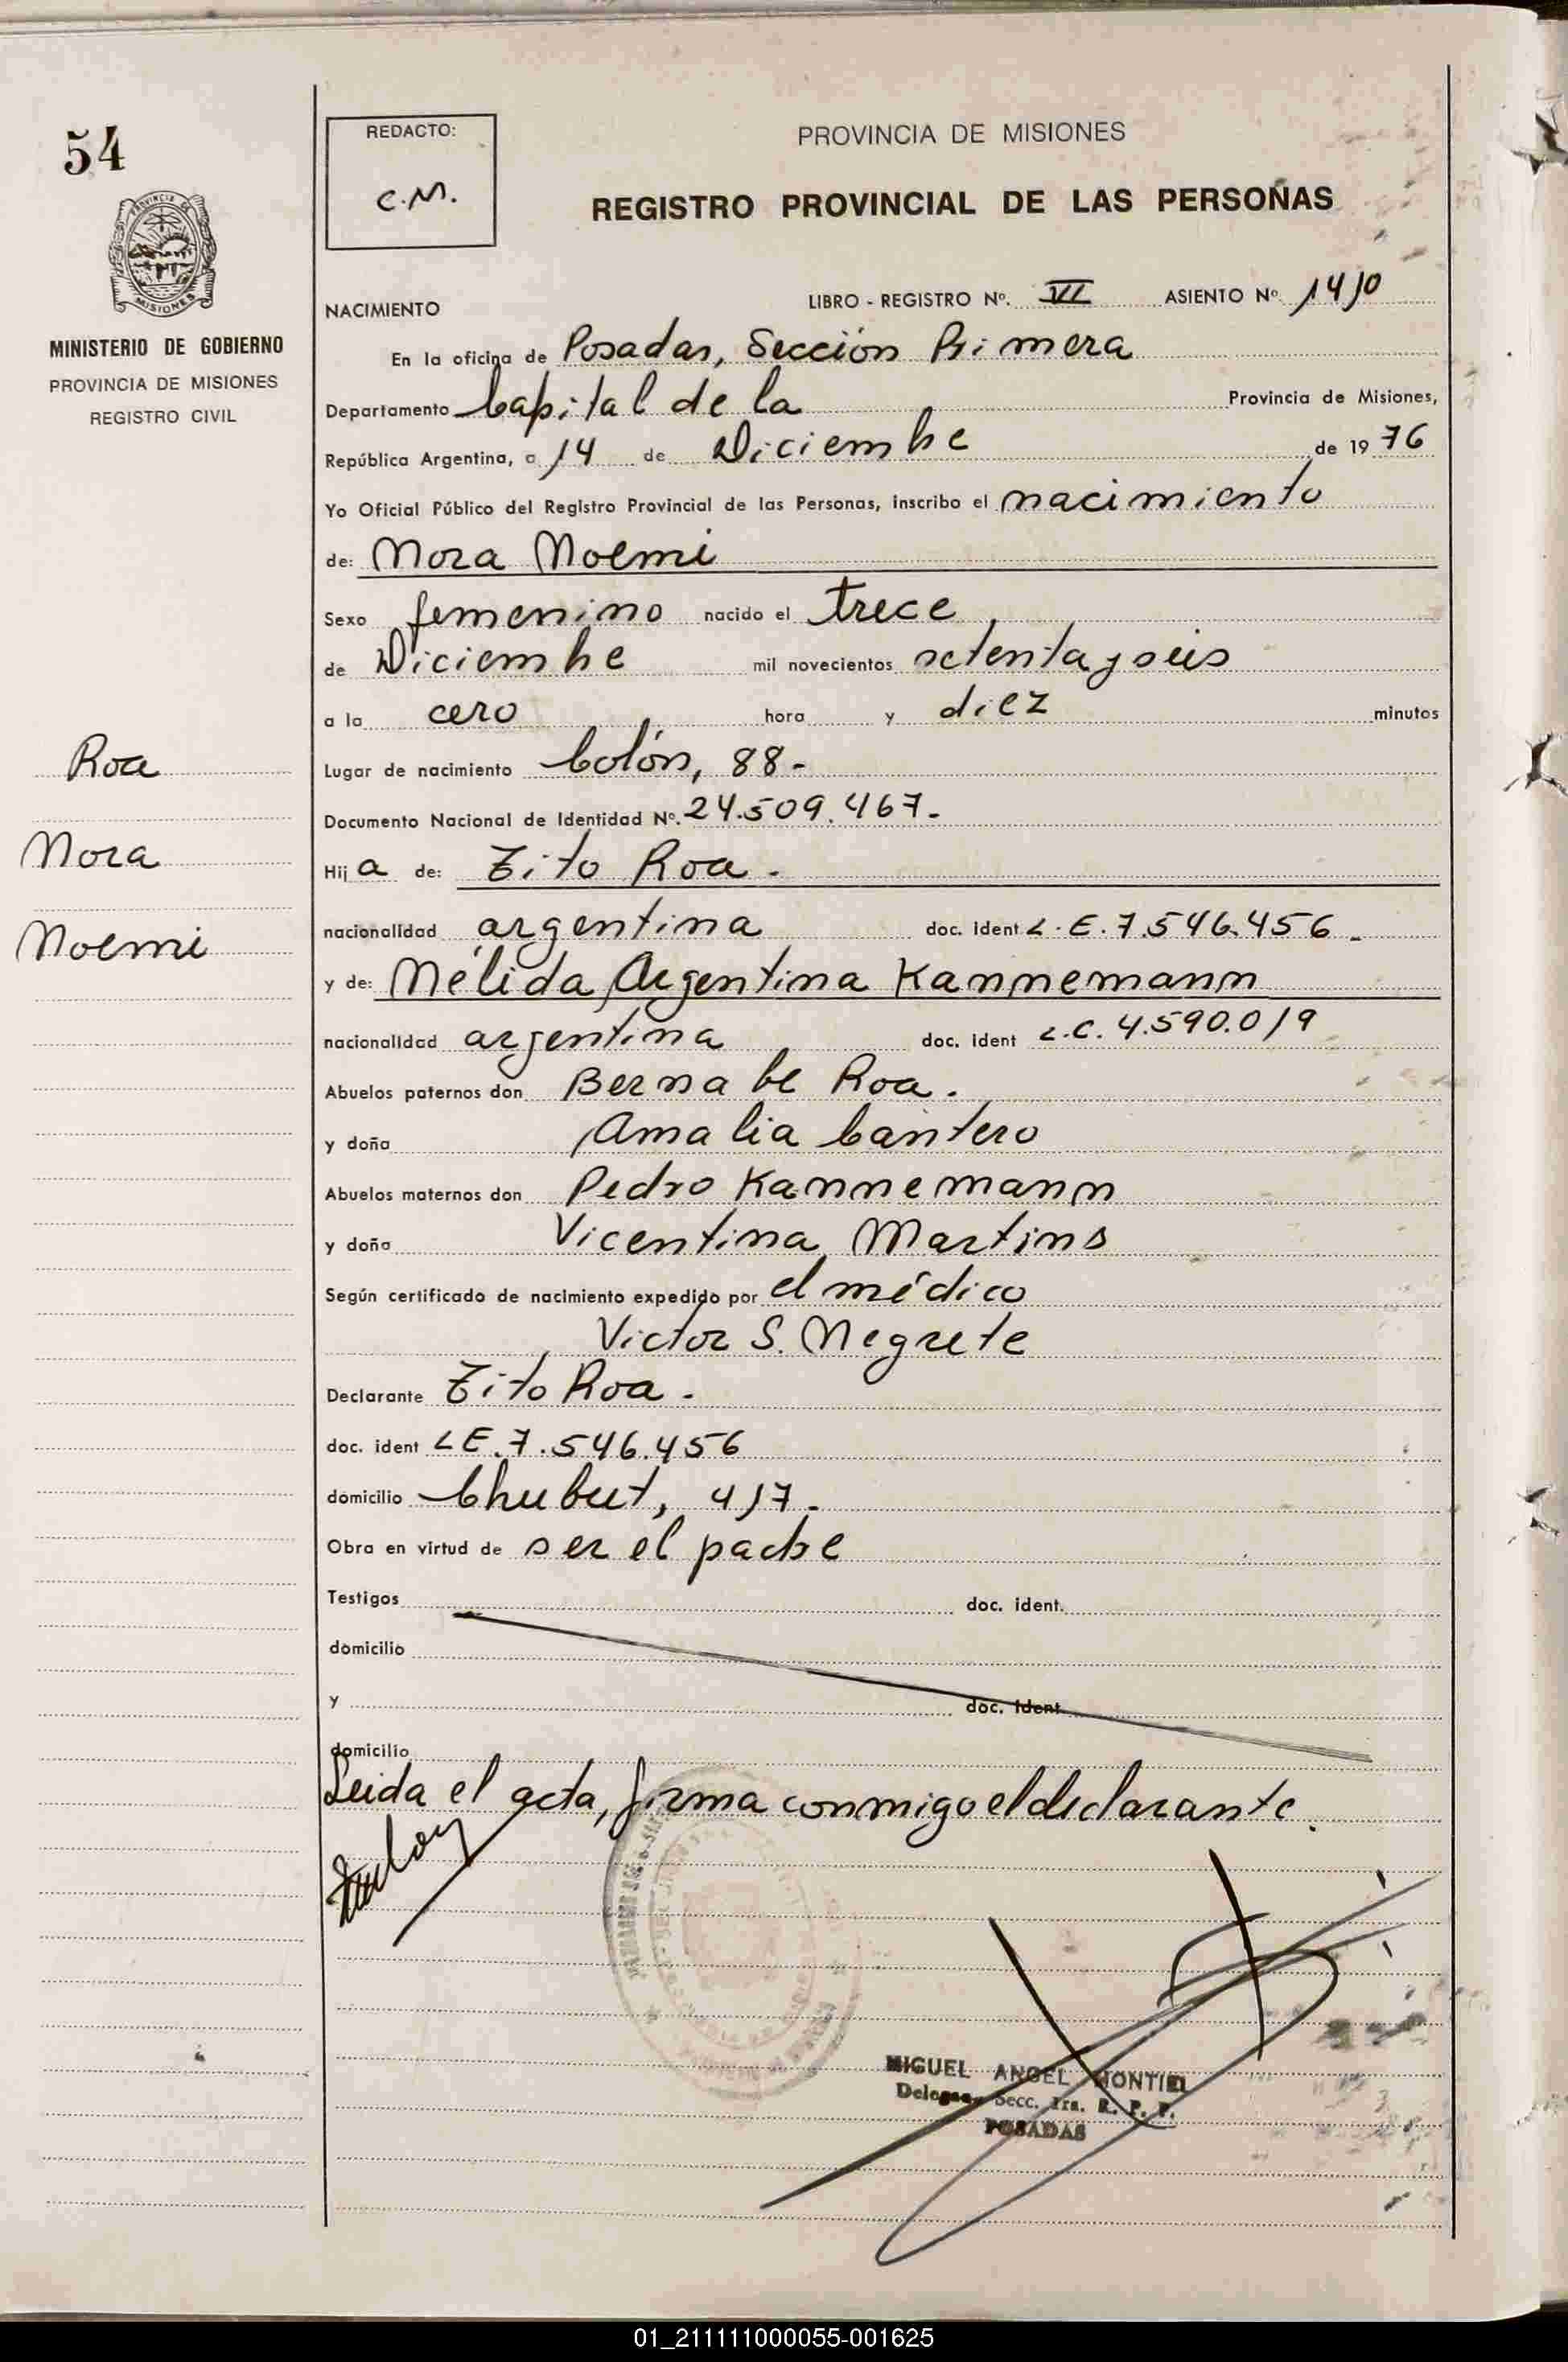 54
REDACTO:
C.M.
PROVINCIA DE MISIONES
REGISTRO PROVINCIAL DE LAS PERSONAS
MISIONES
MINISTERIO DE GOBIERNO
PROVINCIA DE MISIONES
REGISTRO CIVIL
NACIMIENTO LIBRO - REGISTRO Nº. VI ASIENTO Nº 1410
En la oficina de Posadas, Sección Primera
Departamento Capital de la Provincia de Misiones,
República Argentina, a 14 de Diciembre de 1976
Yo Oficial Público del Registro Provincial de las Personas, inscribo el nacimiento
de: Nora Noemi
Sexo femenino nacido el trece
de Diciembre mil novecientos setenta y seis
a la cero hora y diez minutos
Roa
Lugar de nacimiento Colón, 88.-
Documento Nacional de Identidad Nº. 24.509.467.-
Nora
Hija de: Tito Roa.
Noemi
nacionalidad argentina doc. ident L.E. 7.546.456.-
y de: Nélida Argentina Kannemann
nacionalidad argentina doc. ident L.C. 4.590.019
Abuelos paternos don Bernabe Roa.
y doña Amalia Cantero
Abuelos maternos don Pedro Kannemann
y doña Vicentina Martins
Según certificado de nacimiento expedido por el médico
Victor S. Negrete
Declarante Tito Roa.
doc. ident L E. 7.546.456
domicilio Chubut, 417.
Obra en virtud de ser el padre
Testigos doc. ident.
domicilio
y doc. ident
domicilio
Leida el acta, firma conmigo el declarante.
MIGUEL ANGEL MONTIEL
Secc. 1ra. R. P. P.
POSADAS
01_211111000055-001625